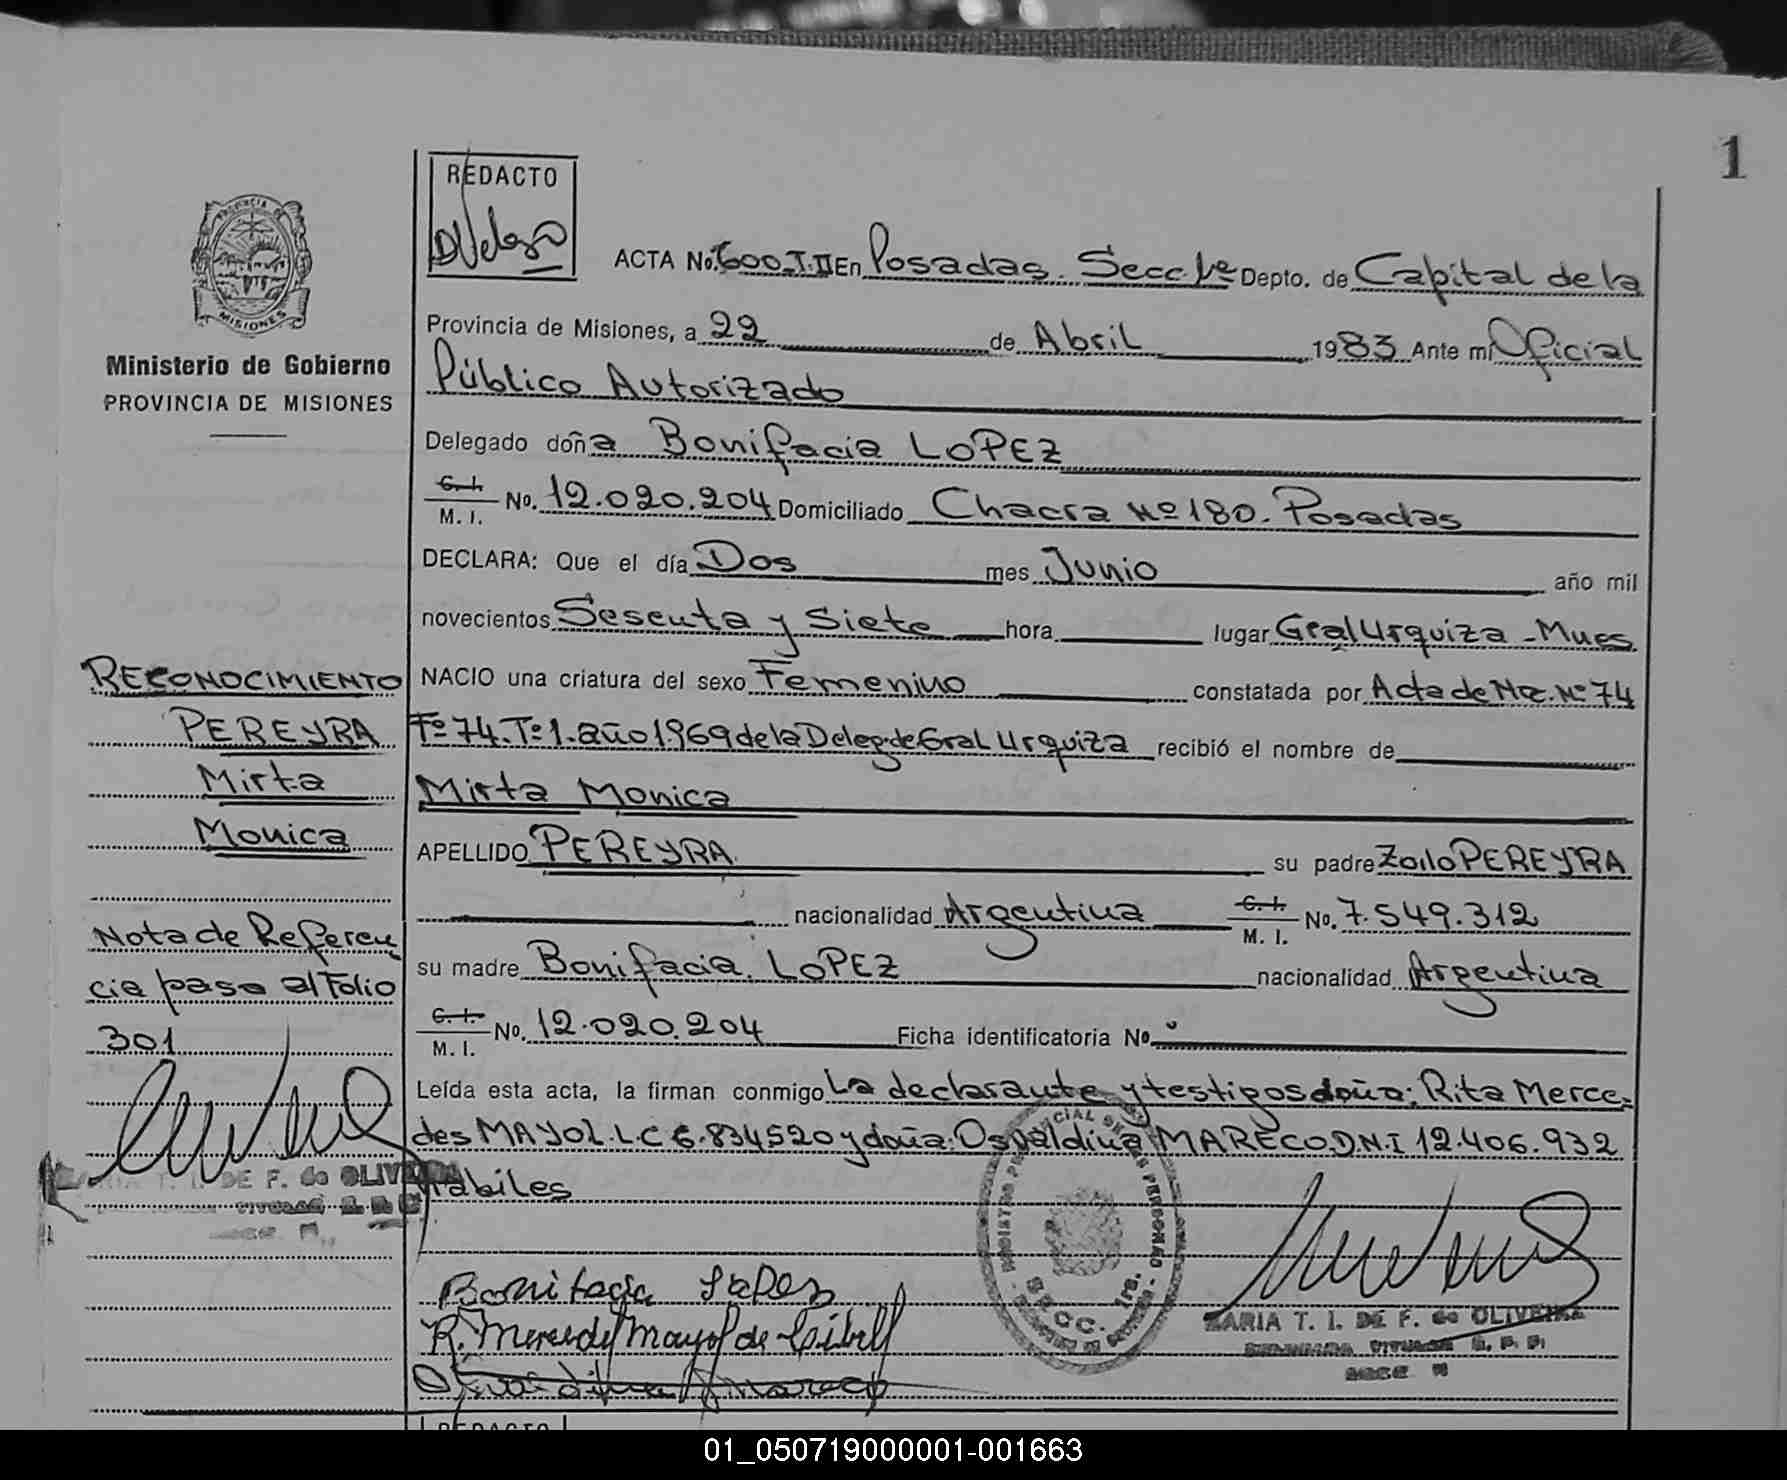 1
REDACTO
DVelozo
PROVINCIA DE
MISIONES
Ministerio de Gobierno
PROVINCIA DE MISIONES
ACTA No. 600-T.II En Posadas. Secc. 1ª Depto. de Capital de la
Provincia de Misiones, a 22 de Abril 1983 Ante mi Oficial
Público Autorizado
Delegado doña Bonifacia LOPEZ
C. I. M. I. No. 12.020.204 Domiciliado Chacra Nº 180. Posadas
DECLARA: Que el día Dos mes Junio año mil
novecientos Sesenta y Siete hora lugar Gral Urquiza - Mnes
NACIO una criatura del sexo Femenino constatada por Acta de Nac. Nº 74
Fº 74. Tº 1. año 1969 de la Deleg. de Gral Urquiza recibió el nombre de
Mirta Monica
APELLIDO PEREYRA su padre Zoilo PEREYRA
nacionalidad Argentina C. I. M. I. No. 7.549.312
su madre Bonifacia LOPEZ nacionalidad Argentina
C. I. M. I. No. 12.020.204 Ficha identificatoria No.
Leída esta acta, la firman conmigo La declarante y testigos doña: Rita Merce-
des MAYOL. L.C 6.834520 y doña: Osvaldina MARECO. D.N.I 12.406.932
habiles
RECONOCIMIENTO
PEREYRA
Mirta
Monica
Nota de Referen
cia pasa al Folio
301
DE F. de OLIVEIRA
TITULAR
Bonifacia Lopez
R. Mercedes Mayol de
Osvaldina Mareco
SECC. 1ra.
MARIA T. I. DE F. de OLIVEIRA
TITULAR R. P. P.
REDACTO
01_050719000001-001663